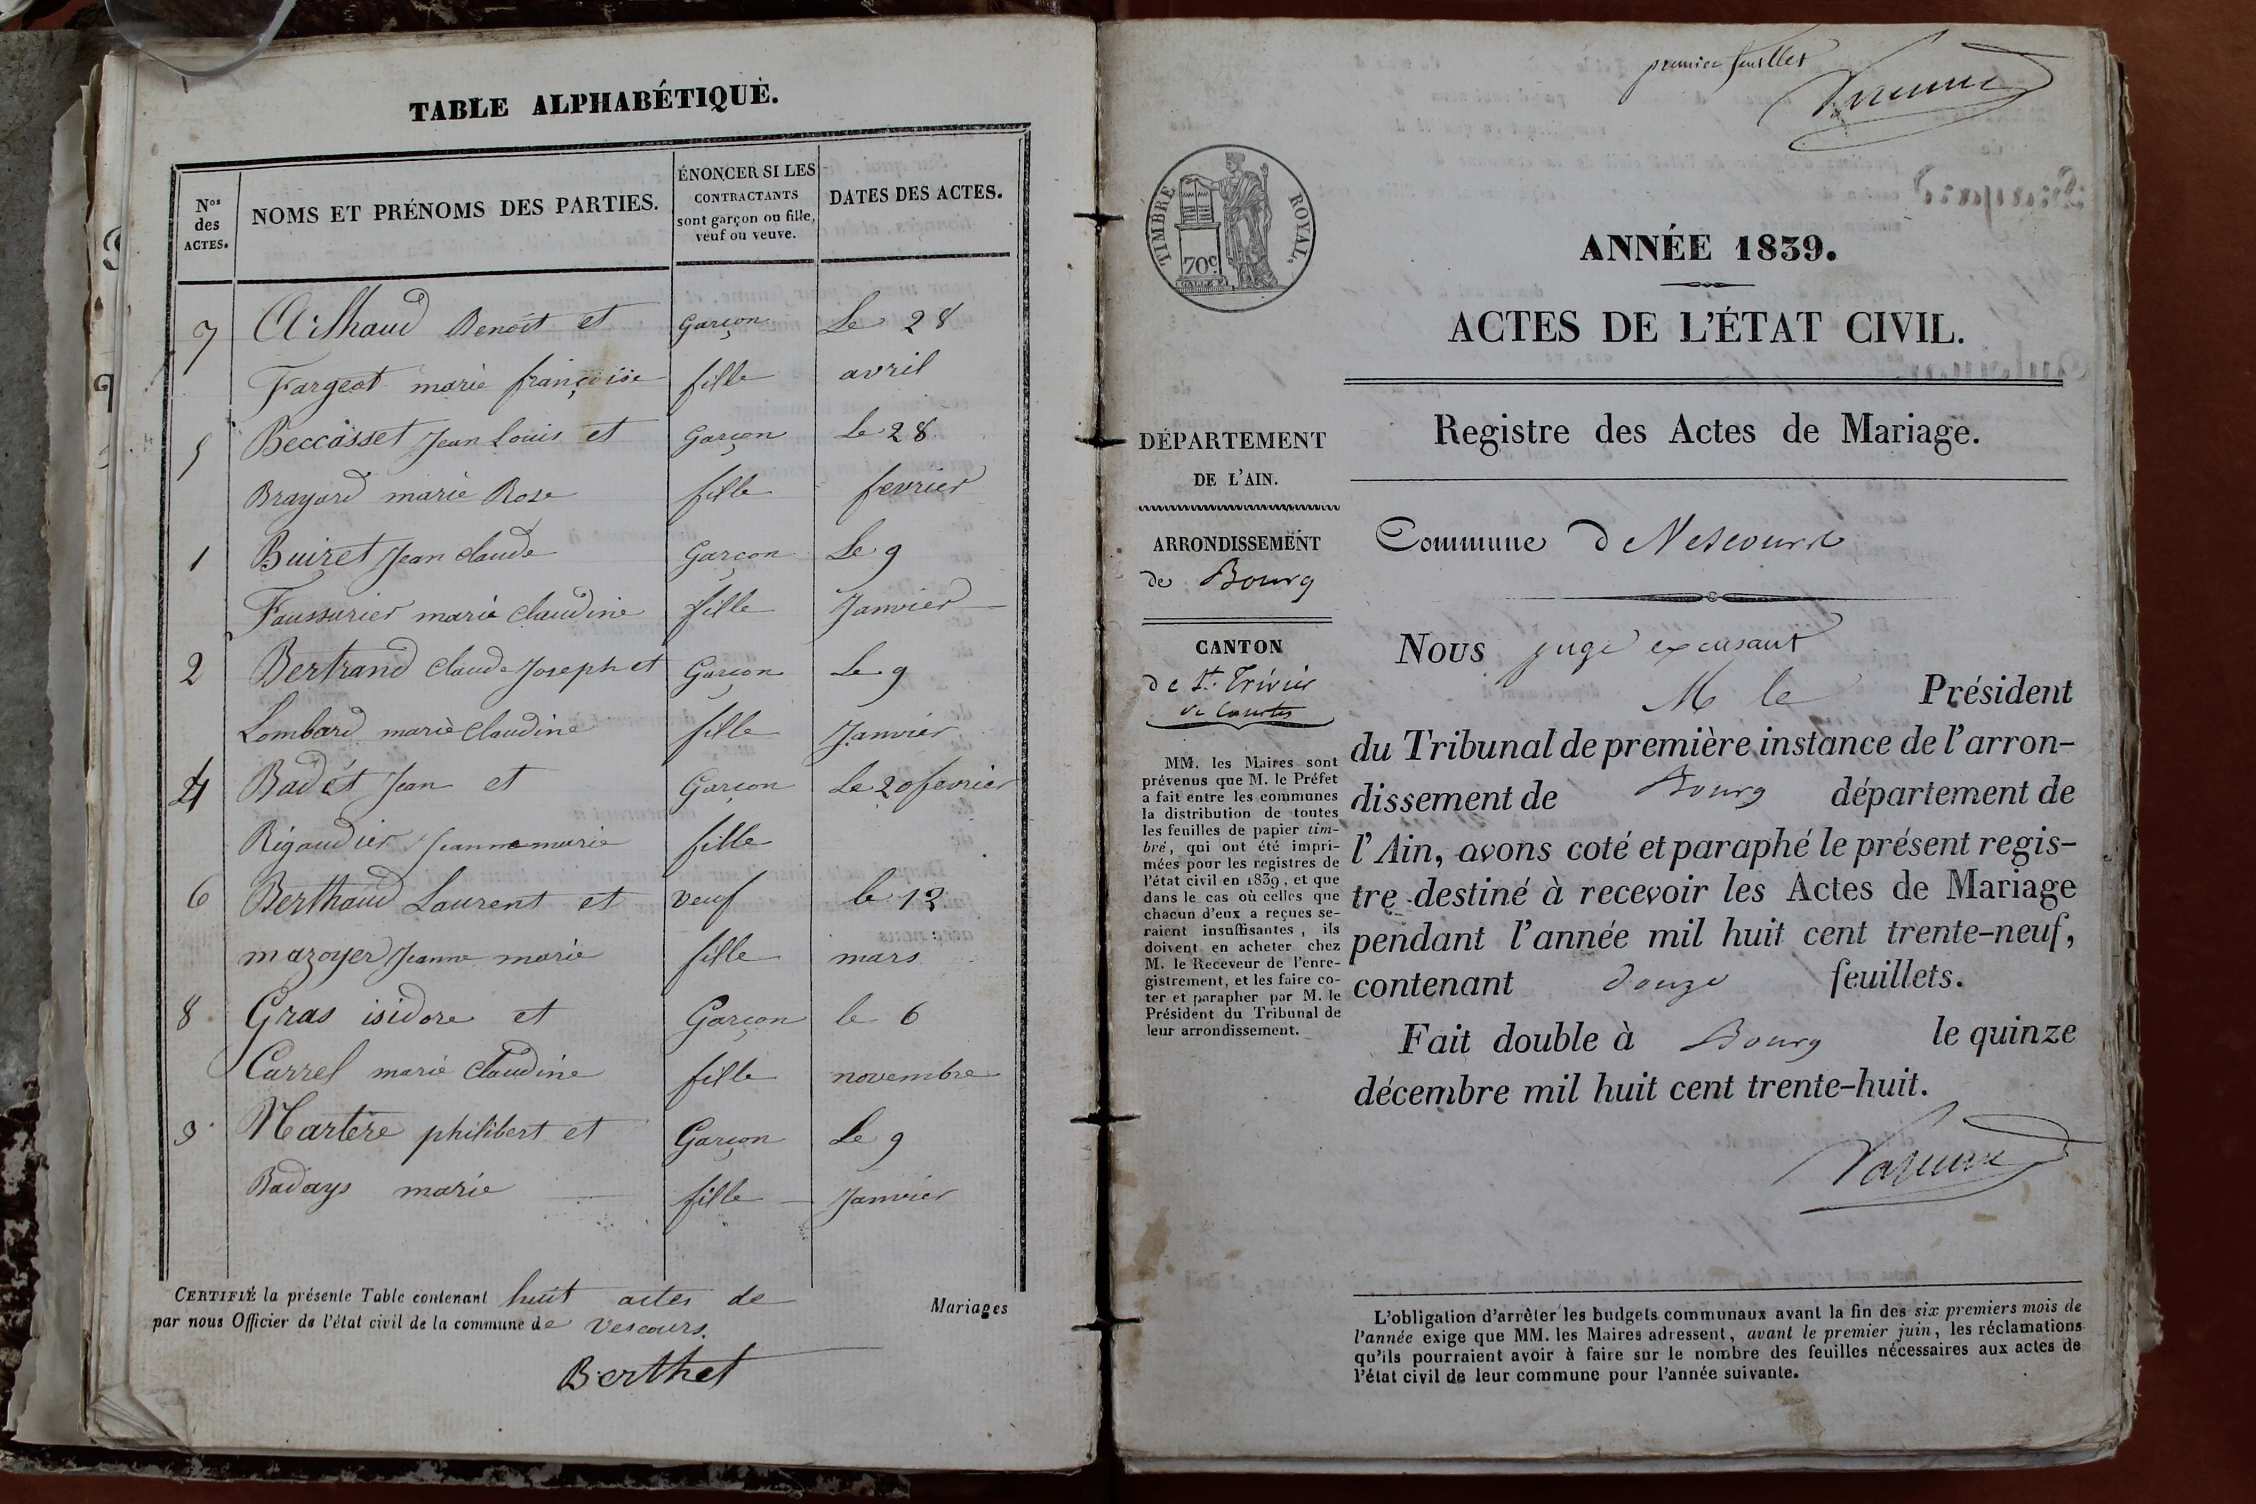 TABLE ALPHABÉTIQUE.
Nos des ACTES.
NOMS ET PRÉNOMS DES PARTIES.
ÉNONCER SI LES
CONTRACTANTS
sont garçon ou fille,
veuf ou veuve.
DATES DES ACTES.
7 Ailhaud Benoît et Garçon Le 28
Fargeot marie françoise fille avril
5 Beccasset Jean Louis et Garçon Le 28
Brayard marie Rose fille fevrier
1 Buiret Jean claude Garçon Le 9
Faussurier marie claudine fille Janvier
2 Bertrand claude Joseph et Garçon Le 9
Lombard marie claudine fille Janvier
4 Badet Jean et Garçon Le 20 fevrier
Rigaudier Jeanne marie fille
6 Berthaud Laurent et veuf le 12
mazoyer Jeanne marie fille mars
8 Gras isidore et Garçon le 6
Carrel marie claudine fille novembre
3 Martère philibert et Garçon Le 9
Badays marie fille Janvier
CERTIFIÉ la présente Table contenant huit actes de Mariages
par nous Officier de l'état civil de la commune de Vescours.
Berthet
premier feuillet
TIMBRE ROYAL.
70c
ANNÉE 1839.
ACTES DE L'ÉTAT CIVIL.
Registre des Actes de Mariage.
DÉPARTEMENT
DE L'AIN.
ARRONDISSEMENT
de Bourg
CANTON
de St. Trivier
de Courtes
MM. les Maires sont
prévenus que M. le Préfet
a fait entre les communes
la distribution de toutes
les feuilles de papier tim-
bré, qui ont été impri-
mées pour les registres de
l'état civil en 1839, et que
dans le cas où celles que
chacun d'eux a reçues se-
raient insuffisantes, ils
doivent en acheter chez
M. le Receveur de l'enre-
gistrement, et les faire co-
ter et parapher par M. le
Président du Tribunal de
leur arrondissement.
Commune de Vescours
Nous juge excusant
M le Président
du Tribunal de première instance de l'arron-
dissement de Bourg département de
l'Ain, avons coté et paraphé le présent regis-
tre destiné à recevoir les Actes de Mariage
pendant l'année mil huit cent trente-neuf,
contenant douze feuillets.
Fait double à Bourg le quinze
décembre mil huit cent trente-huit.
L'obligation d'arrêter les budgets communaux avant la fin des six premiers mois de
l'année exige que MM. les Maires adressent, avant le premier juin, les réclamations
qu'ils pourraient avoir à faire sur le nombre des feuilles nécessaires aux actes de
l'état civil de leur commune pour l'année suivante.